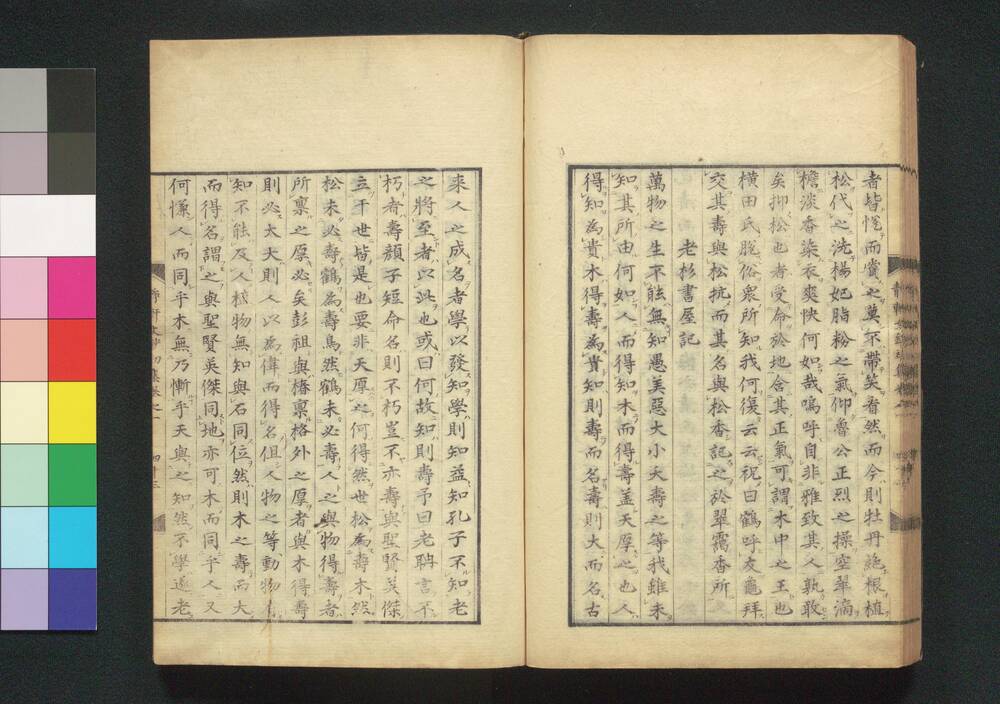 者皆愕而賞之莫不帶笑看然而今則牡丹絶根植
松代之洗楊妃脂粉之氣仰魯公正烈之操空翠滴
檐淡香染衣爽快何如哉嗚呼自非雅致其人孰敢
矣抑松也者受命於地含其正氣可謂木中之王也
横田氏脱俗衆所知我何復云云祝曰鶴呼友龜拜
交其壽與松抗而其名與松香記之於翠靄香所
老杉書屋記
萬物之生不能無知愚美惡大小夭壽之等我雖未
知其所由何如人而得知木而得壽盖天厚之也人
得知為貴木得壽為貴知則壽而名壽則大而名古
来人之成名者學以發知學則知益知孔子不知老
之將至者以此也或曰何故知則壽予曰老聃言不
朽者壽顔子短命名則不朽豈不亦壽與聖賢英傑
立于世皆是也要非天厚之何得然世松為壽木然
松未必壽鶴為壽鳥然鶴未必壽人之與物得壽者
所禀之厚必矣彭祖與椿禀格外之厚者與木得壽
則必大大則人以為偉而得名但人物之等動物
知不能及人植物無知與石同位然則木之壽而大
而得名謂之與聖賢英傑同地亦可木而同乎人又
何慊人而同乎木無乃慚乎天與之知然不學遂老